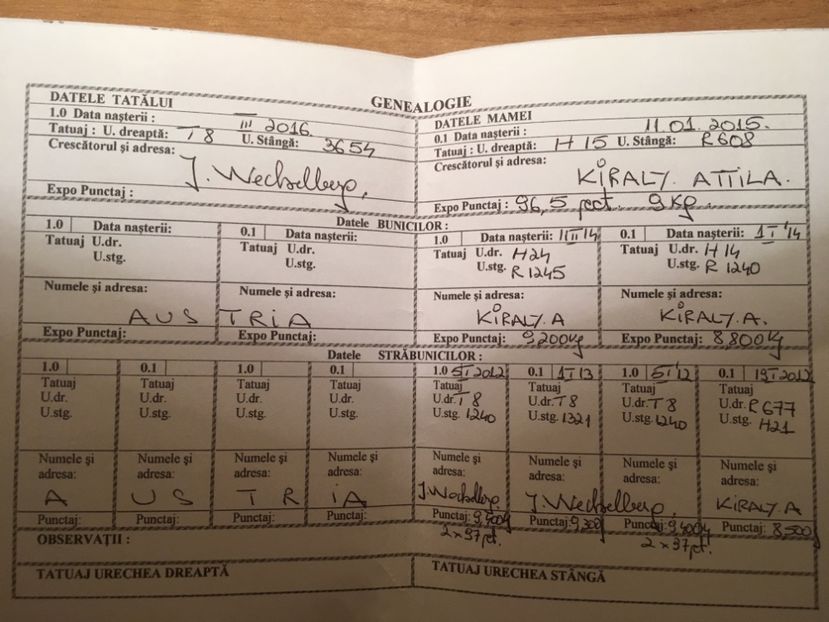 GENEALOGIE
DATELE TATĂLUI
1.0 Data nașterii : III 2016.
Tatuaj : U. dreaptă: T 8 U. Stângă: 3654
Crescătorul și adresa:
J. Wechselberg.
Expo Punctaj :
DATELE MAMEI
0.1 Data nașterii : 11.01.2015.
Tatuaj : U. dreaptă: H 15 U. Stângă: R608
Crescătorul și adresa:
KIRALY ATTILA.
Expo Punctaj : 96,5 pct. 9Kg.
Datele BUNICILOR :
1.0 Data nașterii: 0.1 Data nașterii: 1.0 Data nașterii: 0.1 Data nașterii: 1 I '14
Tatuaj U.dr. Tatuaj U.dr. Tatuaj U.dr. H24 Tatuaj U.dr. H 14
U.stg. U.stg. U.stg. R 1245 U.stg. R 1240
Numele și adresa: Numele și adresa: Numele și adresa: Numele și adresa:
AUSTRIA KIRALY.A KIRALY.A.
Expo Punctaj: Expo Punctaj: Expo Punctaj: 9,200Kg Expo Punctaj: 8,800Kg
Datele STRĂBUNICILOR :
1.0 0.1 1.0 0.1 1.0 5 I 2012 0.1 1 I 13 1.0 5 I '12 0.1 2012
Tatuaj Tatuaj Tatuaj Tatuaj Tatuaj Tatuaj Tatuaj Tatuaj
U.dr. U.dr. U.dr. U.dr. U.dr. T 8 U.dr. T8 U.dr. T 8 U.dr. R677
U.stg. U.stg. U.stg. U.stg. U.stg. 1240 U.stg. 1321 U.stg. 1240 U.stg. H21
Numele și Numele și Numele și Numele și Numele și Numele și Numele și Numele și
adresa: adresa: adresa: adresa: adresa: adresa: adresa: adresa:
AUSTRIA J.Wechselberg. J.Wechselberg. KIRALY.A
Punctaj: Punctaj: Punctaj: Punctaj: Punctaj: 9,400Kg Punctaj: 9,300 Punctaj: 9,400Kg Punctaj: 8,500
2x97pt. 2x97pt.
OBSERVAȚII :
TATUAJ URECHEA DREAPTĂ TATUAJ URECHEA STÂNGĂ